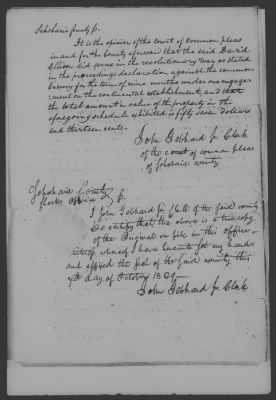 Schoharie County ss.
It is the opinion of the court of common pleas
in and for the County aforesaid that the said David
Ellison did serve in the revolutionary war as stated
in the preceeding declaration against the common
enemy for the term of nine months under one engage
ment on the continental establishment, and that
the total amount in value of the property in the
aforegoing schedule exhibited is fifty seven dollars
and thirteen cents.
John Gebhard Jr Clerk
of the court of common pleas
of Schoharie county
Schoharie County
Clerks Office ss.
I John Gebhard Jr Clerk of the said county
Do certify that the above is a true copy
of the Original on file in this office
whereof I have hereunto set my hand
and affixed the seal of the said county this
day of October
John Gebhard Jr Clerk